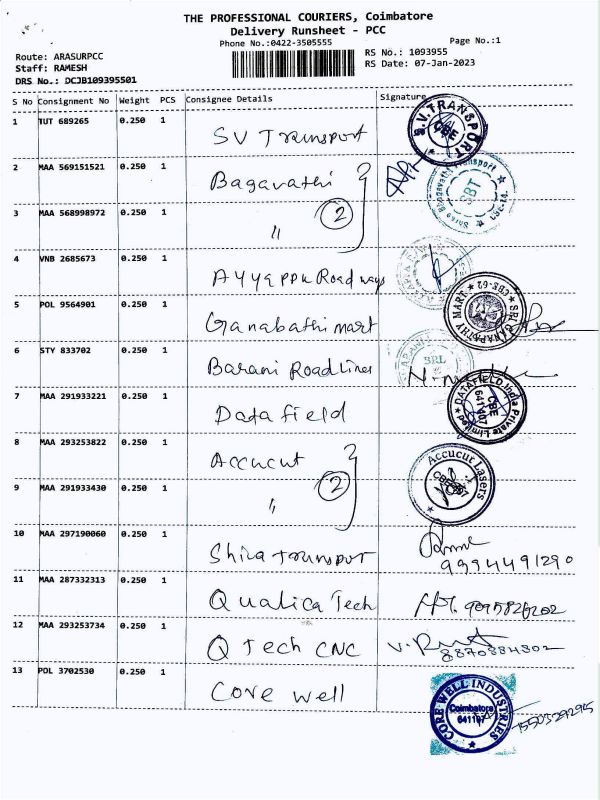 THE PROFESSIONAL COURIERS, Coimbatore
Delivery Runsheet - PCC
Phone No.:0422-3505555
Page No.:1
Route: ARASURPCC
RS No.: 1093955
Staff: RAMESH
RS Date: 07-Jan-2023
DRS No.: DCJB109395501
S No Consignment No Weight PCS Consignee Details Signature
1 TUT 689265 0.250 1 SV Transport S.V.TRANSPORT CBE
2 MAA 569151521 0.250 1 Bagavathi SBT
3 MAA 568998972 0.250 1 " 2
4 VNB 2685673 0.250 1 Ayyappa Roadways
5 POL 9564901 0.250 1 Ganabathi mart SRI GANAPATHY MARK CBE-62
6 STY 833702 0.250 1 Barani Road Lines SRL
7 MAA 291933221 0.250 1 Data field DATAFIELD India Private Limited CBE 641407
8 MAA 293253822 0.250 1 Accucut Accucur Lasers
9 MAA 291933430 0.250 1 " 2
10 MAA 297190060 0.250 1 Shiva transport 9994491290
11 MAA 287332313 0.250 1 Qualica Tech
12 MAA 293253734 0.250 1 Q Tech CNC 8870884302
13 POL 3702530 0.250 1 Core well CORE WELL INDUSTRIES Coimbatore